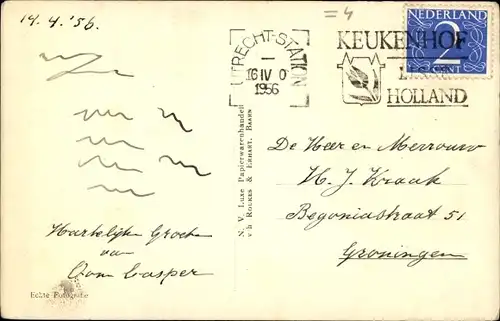 14.4.'56.
= 4
NEDERLAND
2
CENT
UTRECHT-STATION
16 IV 0
1956
KEUKENHOF
HOLLAND
N. V. Luxe Papierwarenhandel
v h Roukes & Erhart, Baarn
De Heer en Mevrouw
H. J. Kraak
Begoniastraat 51
Groningen
Hartelijke Groeten
van
Oom Casper
Echte Fotografie